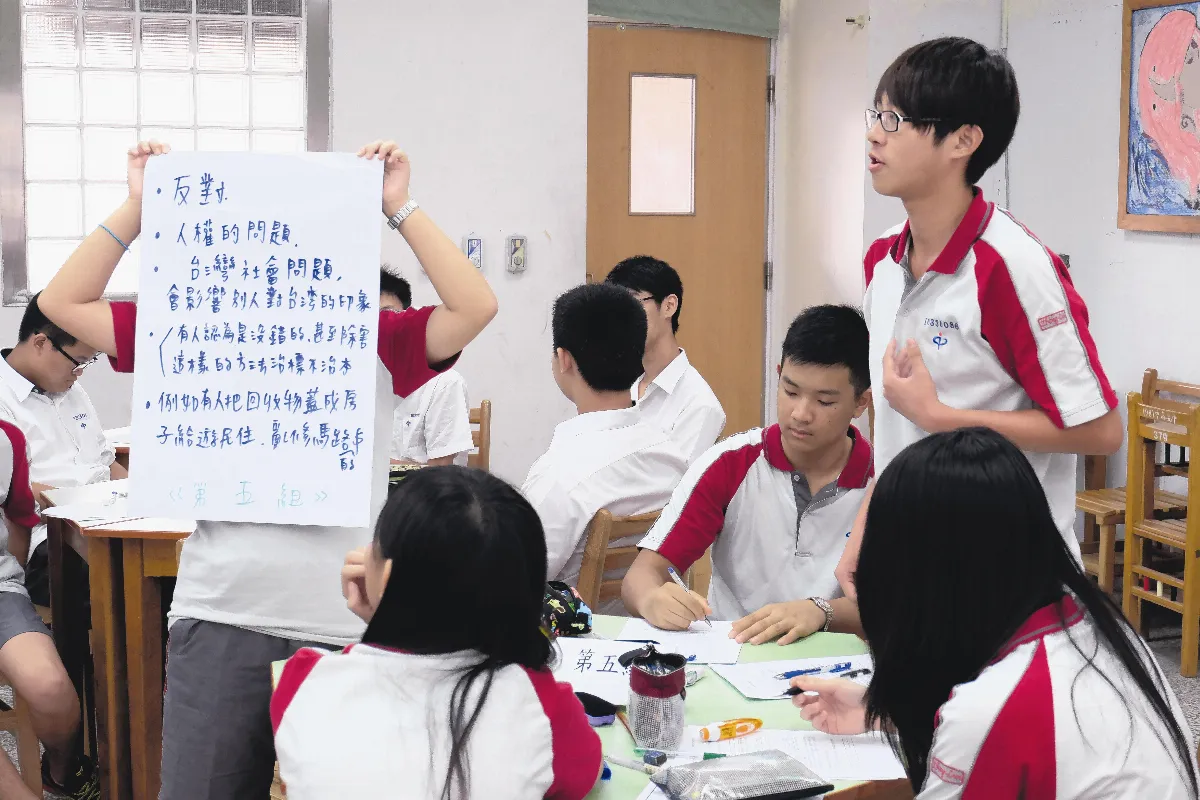 • 反對.
• 人權的問題.
• 台灣社會問題,
會影響別人對台湾的印象
• 有人認為是沒錯的,甚至除害
這樣的方法治標不治本
• 例如有人把回收物蓋成房
子給遊民住、亂修馬路的
《第五組》
第五
379